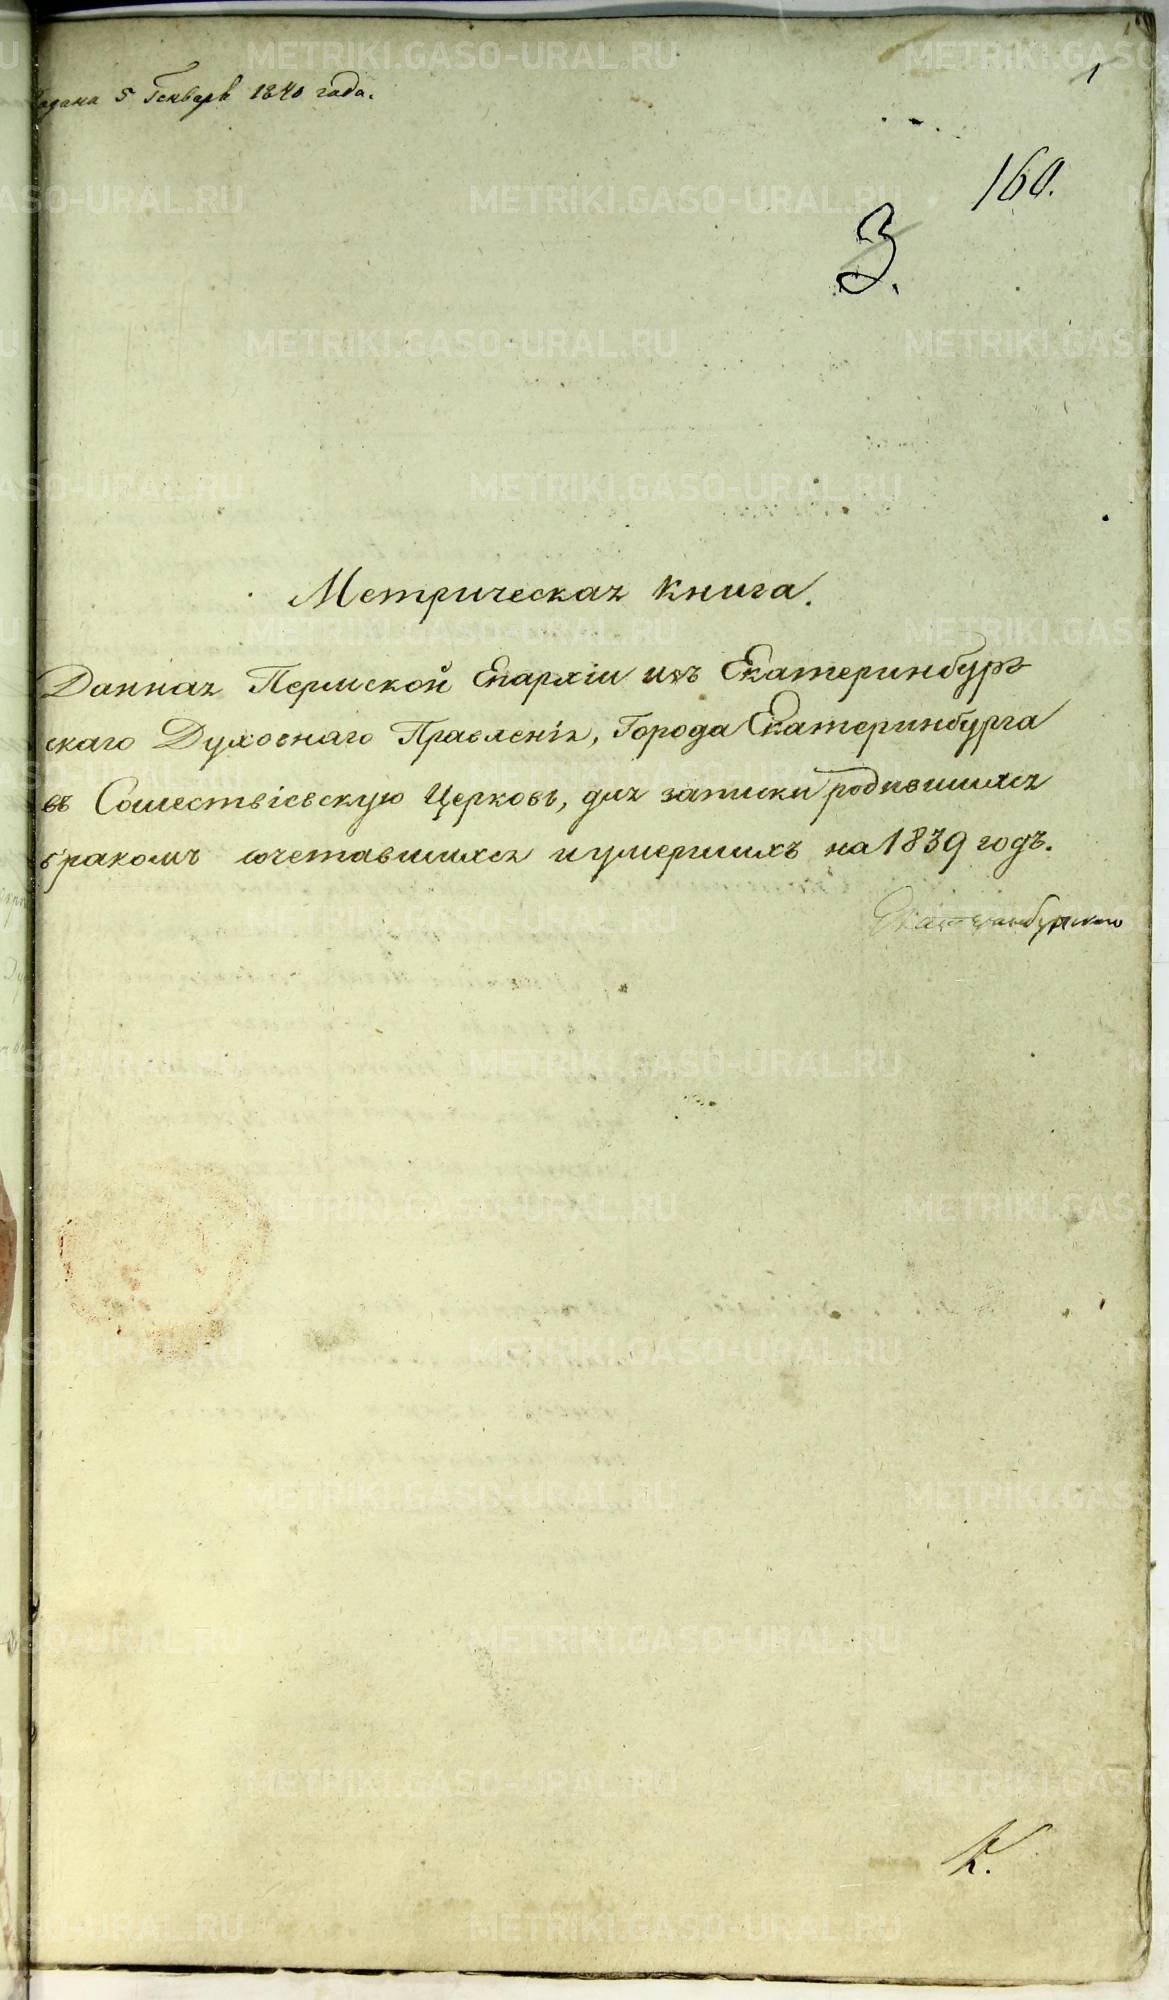 5 Генваря 1840 года.
1
160.
3.
Метрическая книга.
Данная Пермской Епархіи изъ Екатеринбург
скаго Духовнаго Правленія, Города Екатеринбурга
въ Сошествіевскую Церковь, для записки родившихся
бракомъ сочетавшихся и умершихъ на 1839 годъ.
Екатеринбургскаго
К.
METRIKI.GASO-URAL.RU